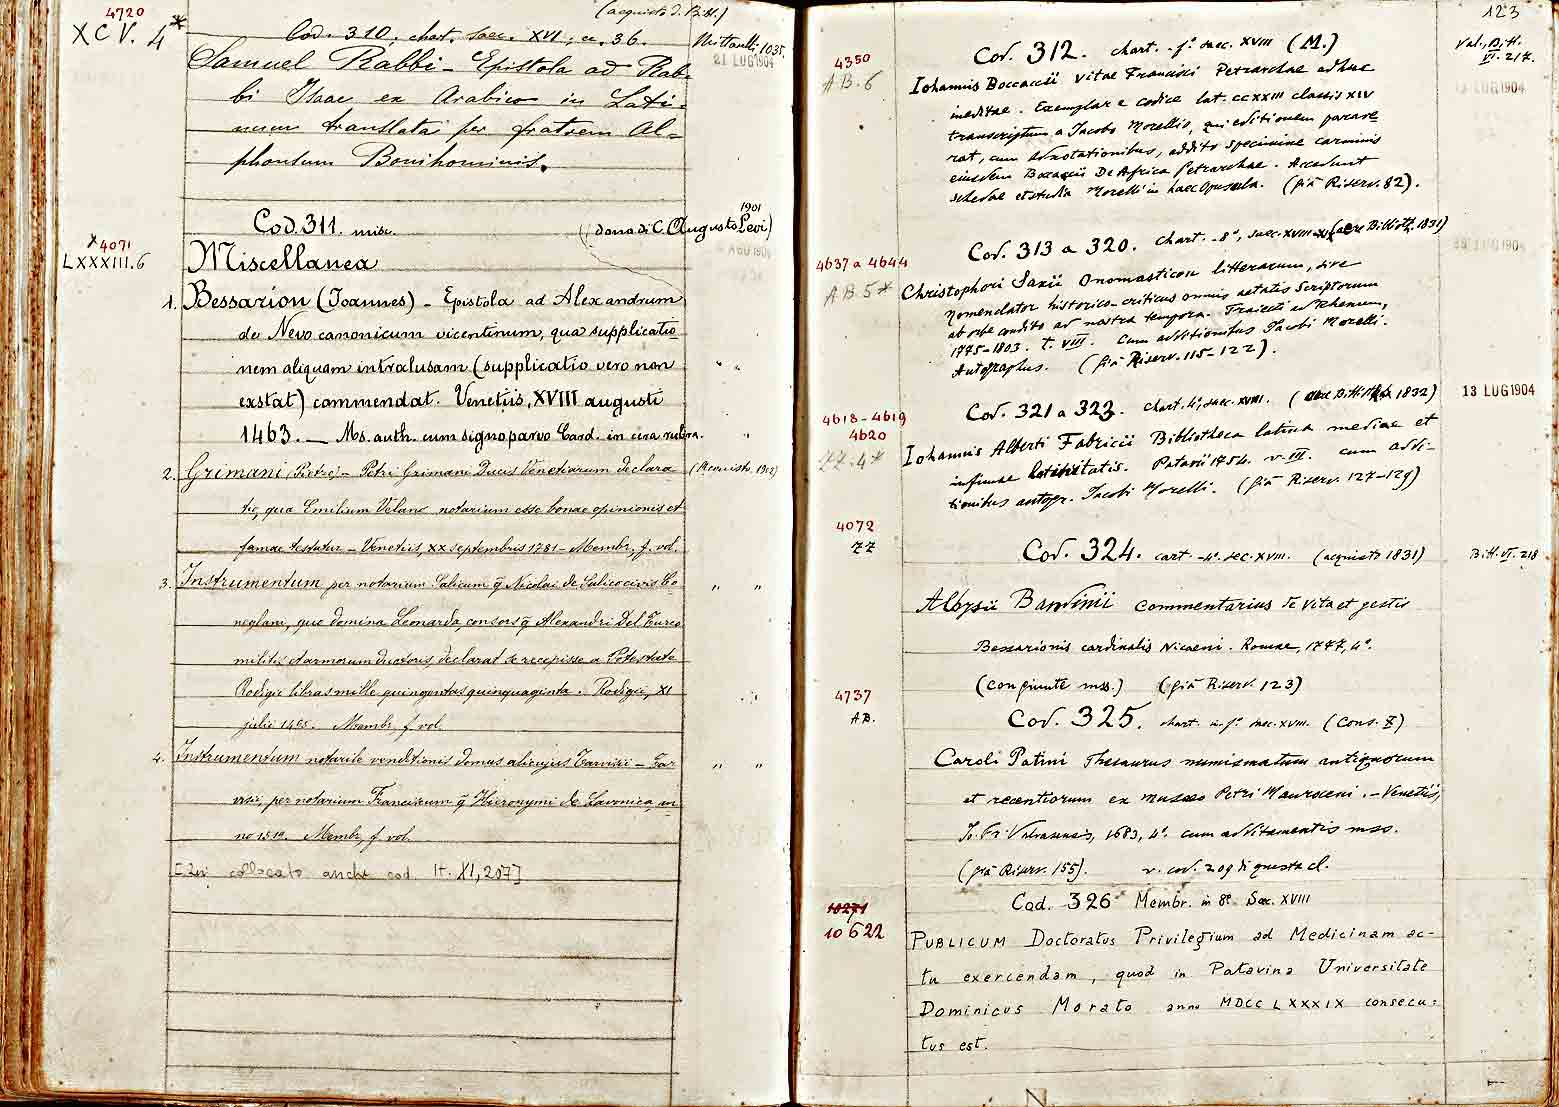 4720
XCV. 4*
(acquisto d. Bibl.)
Cod. 310. chart. saec. XVI, cc. 36.
Mittarelli, 1035.
21 LUG 1904
Samuel Rabbi - Epistola ad Rab-
bi Isaac ex Arabico in Lati-
num translata per fratrem Al-
phonsum Bonihominis.
Cod. 311. misc.
(dono di C. Augusto Levi)
1901
*4071
LXXXIII.6
Miscellanea
1. Bessarion (Ioannes) - Epistola ad Alexandrum
de Nevo canonicum vicentinum, qua supplicatio-
nem aliquam intralusam (supplicatio vero non
exstat) commendat. Venetiis, XVIII augusti
1463. — Ms. auth. cum signo parvo Card. in cera rubra.
2. Grimani (Pietro) - Petri Grimani Ducis Venetiarum declara-
(Acquisto 1902)
tio, qua Emilium Velano notarium esse bonae opinionis et
famae testatur - Venetiis, XX septembris 1781 - Membr, f. vol.
3. Instrumentum per notarium Salicum q Nicolai de Salico civis Co-
neglani, quo domina Leonarda, consors q Alexandri Del Turco
militis et armorum ductoris declarat se recepisse a Potestate
Rodigii libras mille quingentas quinquaginta. Rodigii, XI
julii 1495. Membr, f. vol.
4. Instrumentum notarile venditionis domus alicujus Tarvisii - Tar-
visii, per notarium Franciscum q Hieronymi de Lavonica an-
no 1519. Membr, f. vol.
[Ivi collocato anche cod. It. XI, 207]
123
4350
AB. 6
Cod. 312. chart. - fº. saec. XVIII (M.)
Val., Bibl.
VI. 217.
13 LUG 1904
Iohannis Boccaccii vitae Francisci Petrarchae adhuc
ineditae. Exemplar e codice lat. CCXXIII classis XIV
transcriptum a Jacobo Morellio, qui editionem parave-
rat, cum adnotationibus, addito specimine carminis
eiusdem Boccaccii De Africa Petrarchae. Accedunt
schedae et studia Morelli in haec opuscula. (già Riserv. 82).
4637 a 4644
AB 5*
Cod. 313 a 320. chart. - 8º, saec. XVIII-XIX (acre Biblioth. 1831)
Christophori Saxii Onomasticon litterarum, sive
nomenclator historico-criticus omnis aetatis scriptorum
ab orbe condito ad nostra tempora. Traiecti ad Rhenum,
1775-1803. t. VIII. cum additionibus Jacobi Morelli.
Autographus. (già Riserv. 115-122).
4618-4619
4620
ZZ. 4*
Cod. 321 a 323. chart. 4º, saec. XVIII. (aere Biblioth. 1832)
13 LUG 1904
Iohannis Alberti Fabricii Bibliotheca latina mediae et
infimae latinitatis. Patavii 1754. v. III. cum addi-
tionibus autogr. Jacobi Morelli. (già Riserv. 127-129)
4072
ZZ
Cod. 324. cart. - 4º. sec. XVIII. (acquisto 1831)
Bibl. VI. 218
Aloysii Bandinii commentarius de vita et gestis
Bessarionis cardinalis Nicaeni. Romae, 1777, 4º.
(congiunte mss.) (già Riserv. 123)
4737
AB.
Cod. 325. chart. in fº. saec. XVIII. (Cons. X)
Caroli Patini Thesaurus numismatum antiquorum
et recentiorum ex museo Petri Mauroceni. - Venetiis,
Jo. Fr. Valvasensis, 1683, 4º. cum additamentis mss.
(già Riserv. 155). v. cod. 209 di questa cl.
10271
10622
Cod. 326 Membr. in 8º Sec. XVIII
PUBLICUM Doctoratus Privilegium ad Medicinam ac-
tu exercendam, quod in Patavina Universitate
Dominicus Morato anno MDCCLXXXIX consecu-
tus est.